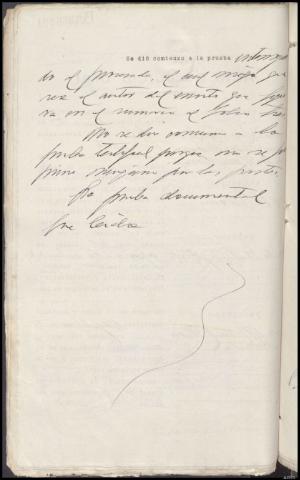 Se dió comienzo a la prueba interrogan
do el procesado, el cual niega que
sea el autor del escrito que figu
ra en el sumario al folio tres
No se dio comienzo a la
prueba testifical porque no se pro
puso ninguna por las partes.
La prueba documental
fue leida